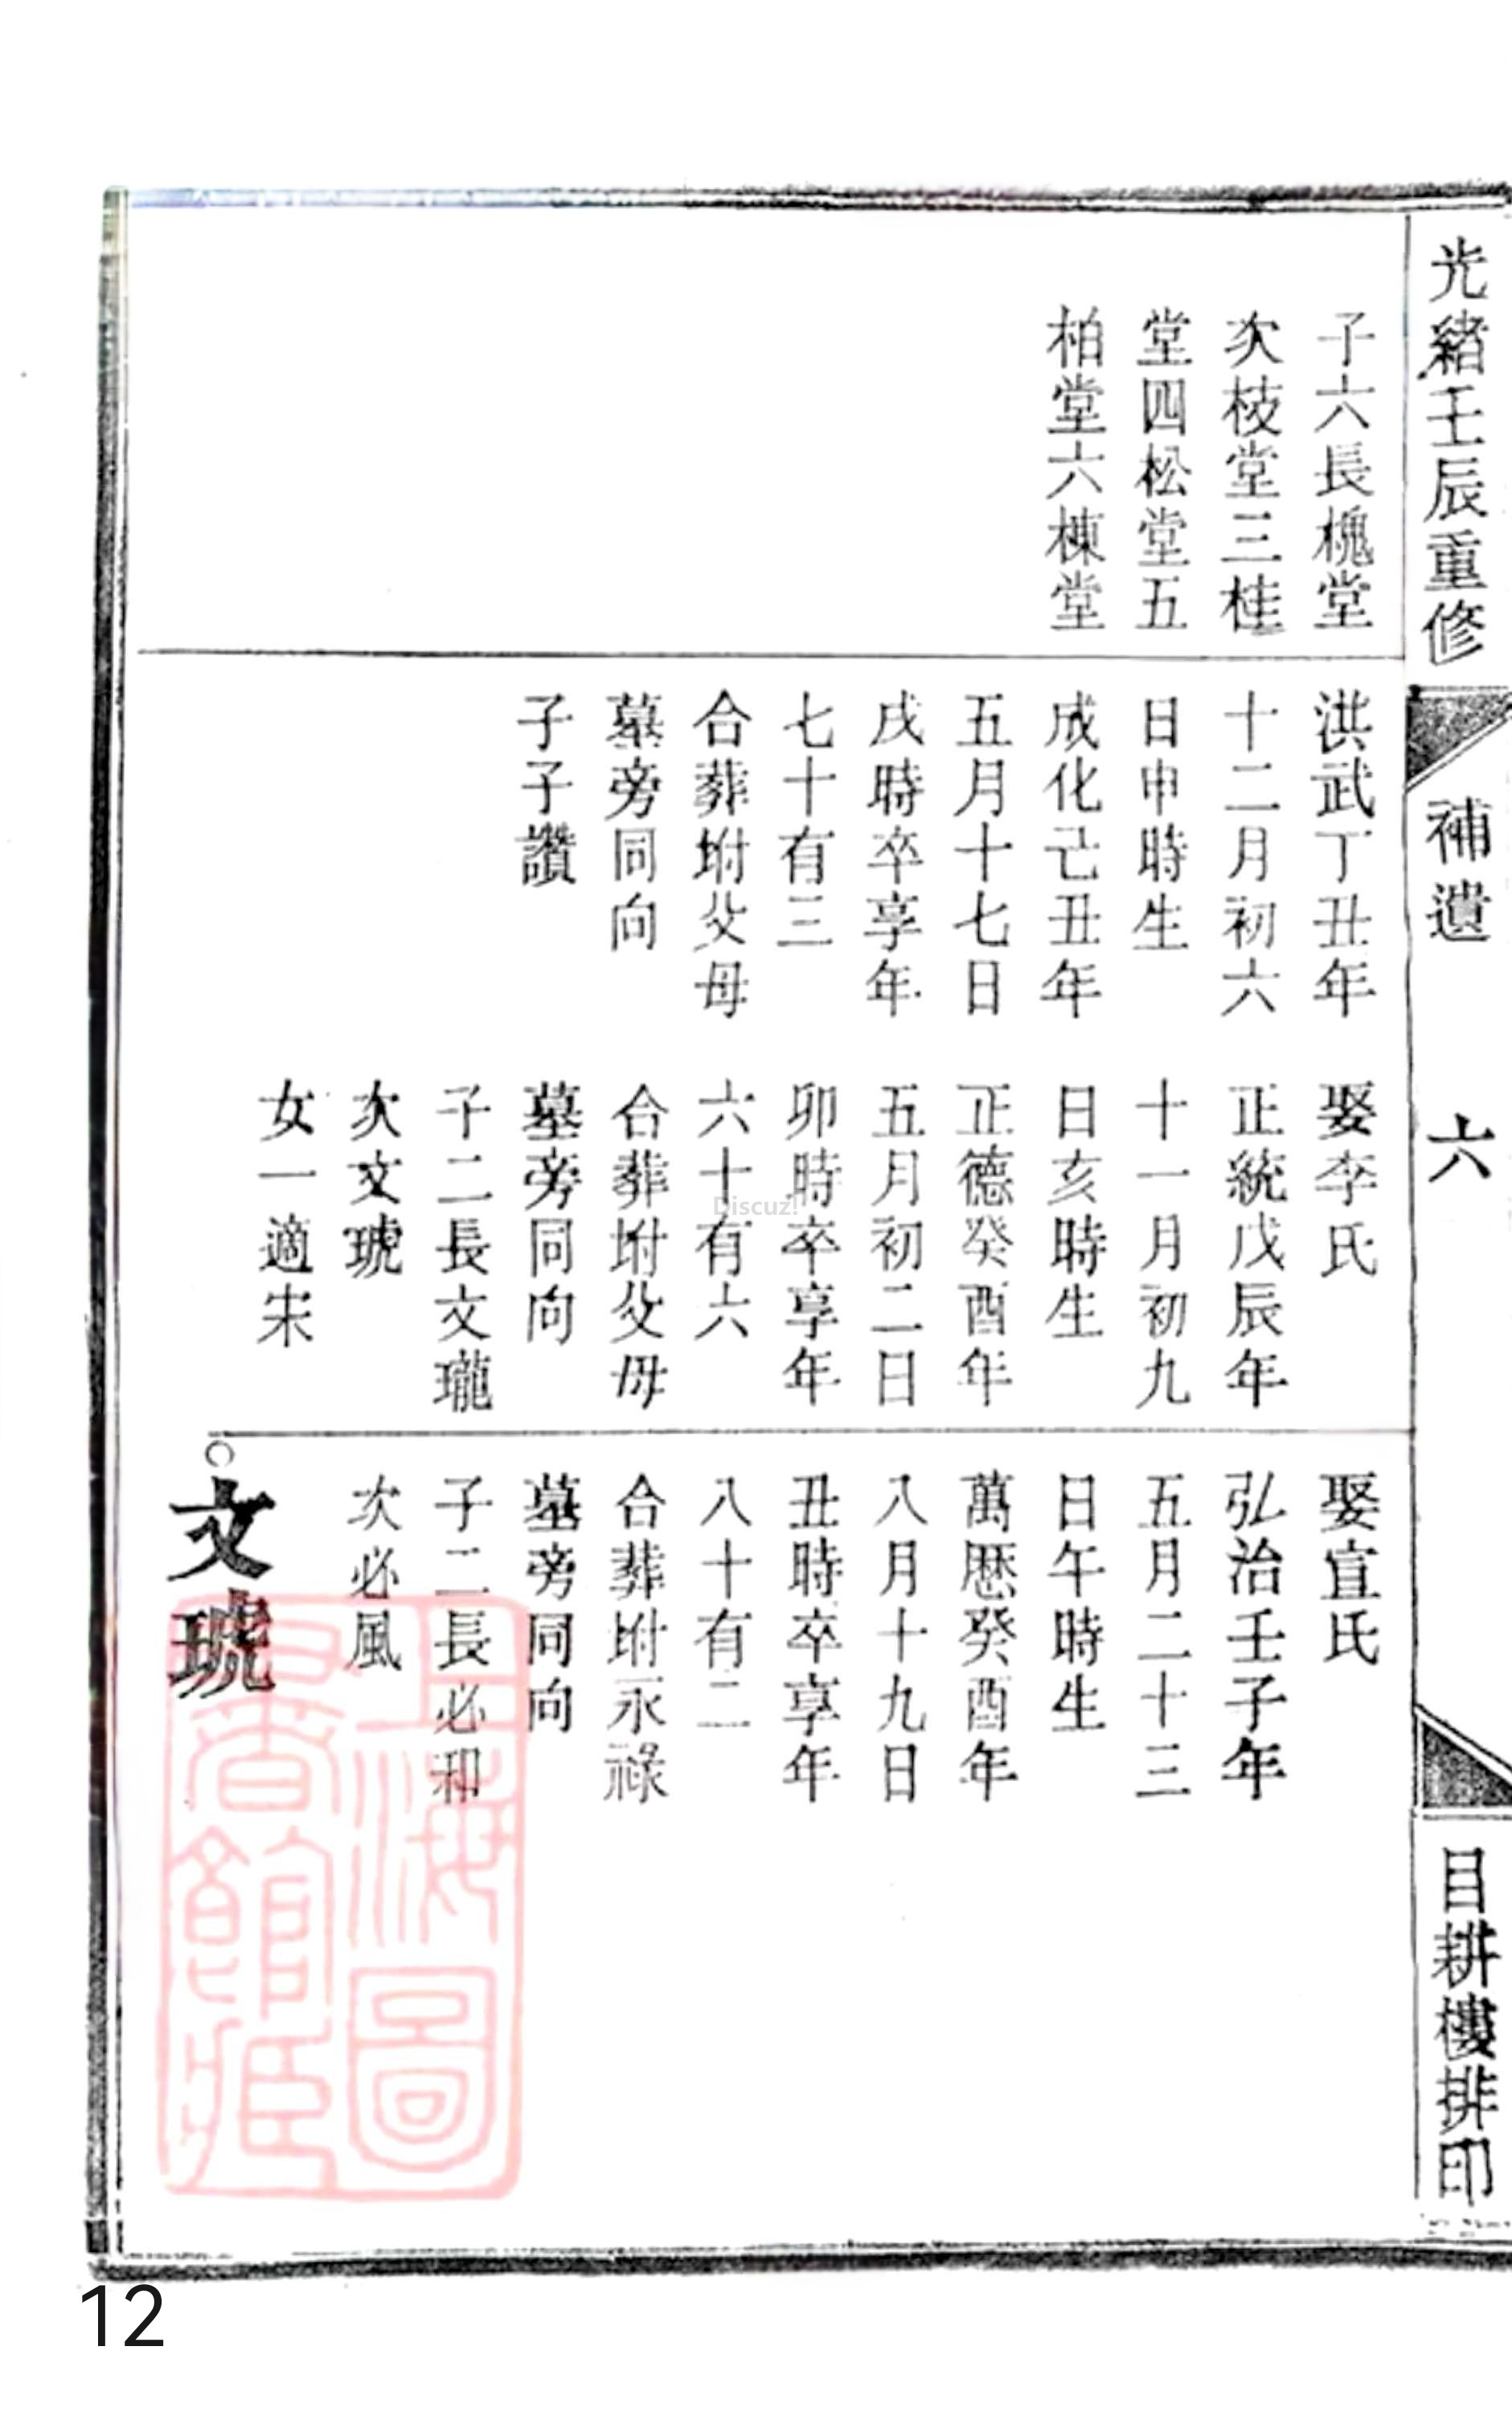 光緒壬辰重修
補遺
六
目耕樓排印
子六長槐堂
次枝堂三桂
堂四松堂五
柏堂六棟堂
洪武丁丑年
十二月初六
日申時生
成化己丑年
五月十七日
戌時卒享年
七十有三
合葬坿父母
墓旁同向
子子讚
娶李氏
正統戊辰年
十一月初九
日亥時生
正德癸酉年
五月初二日
卯時卒享年
六十有六
合葬坿父母
墓旁同向
子二長文瓏
次文琥
女一適宋
娶宣氏
弘治壬子年
五月二十三
日午時生
萬厯癸酉年
八月十九日
丑時卒享年
八十有二
合葬坿永祿
墓旁同向
子二長必和
次必風
文琥
上海圖
書館藏
Discuz!
12